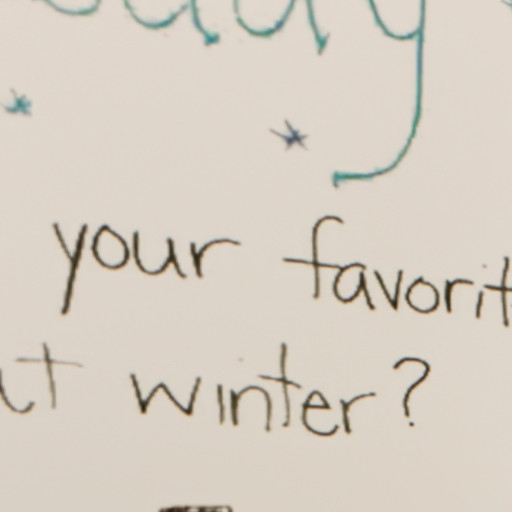 your favorit
ut winter?